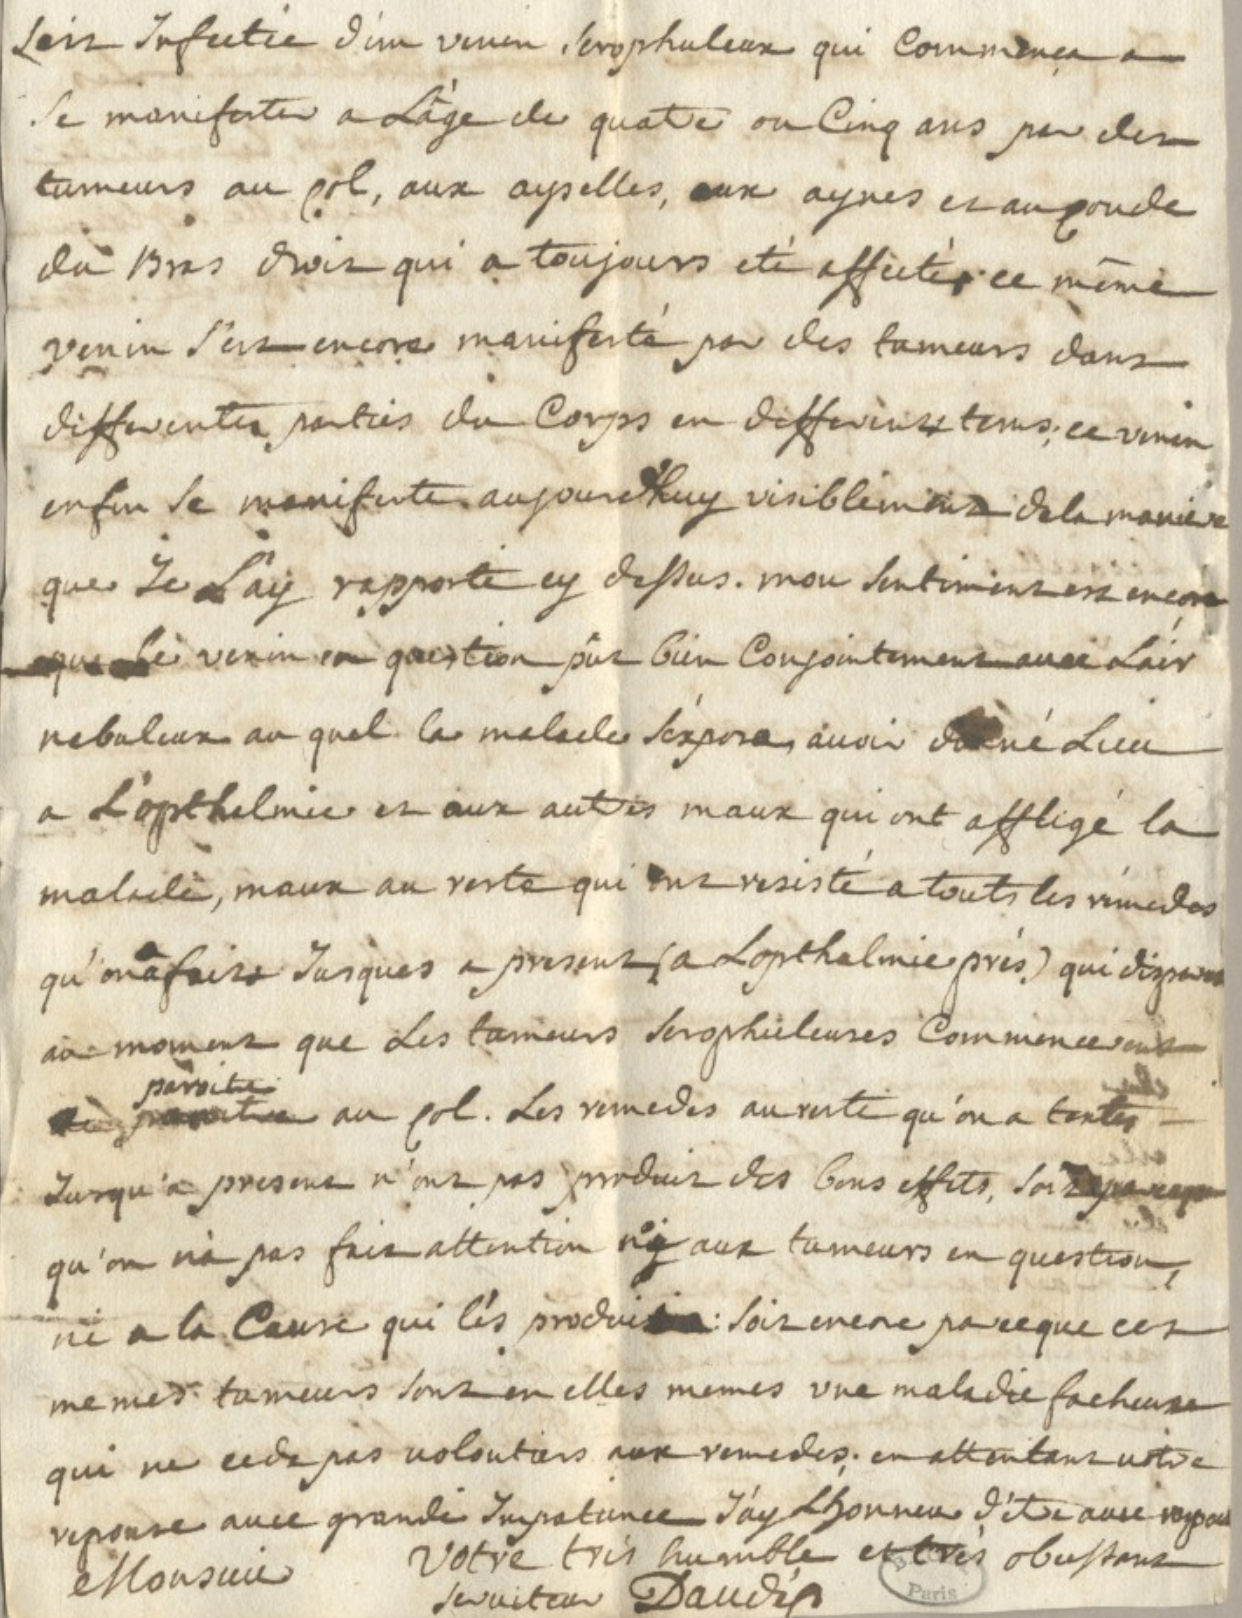 soit Infectée d'un venin scrophuleux qui commença a
se manifester a L'âge de quatre ou Cinq ans par des
tumeurs au çol, aux ayselles, aux aynes et au çoude
du Bras droit qui a toujours eté affecté, ce même
venin s'est encore manifesté par des tumeurs dans
differentes parties du Corps en differents tems; ce venin
enfin se manifeste aujourd'huy visiblement de la maniere
que Je L'ay rapporté cy dessus. mon sentiment est encore
que le venin en question pût bien Conjointement avec L'air
nebuleux au quel la malade s'éxposa, avoir donné Lieu
a L'opthelmie et aux autres maux qui ont affligé la
malade, maux au reste qui ont resisté a touts les rémedes
qu'on a faits Jusques a present (a Lopthelmie prés) qui disparut
au moment que Les tumeurs scrophuleuses Commencerent
paroitre
au çol. Les remedes au reste qu'on a tentés
Jusqu'a present n'ont pas produit des bons effets, soit parceque
qu'on n'a pas fait attention ny aux tumeurs en question,
ni a la Cause qui lés produisit: soit encore parceque ces
memes tumeurs sont en elles memes une maladie facheuse
qui ne cede pas volontiers aux remedes. en attentant votre
reponse avec grande Impatiance J'áy Lhonneur d'étre avec respect
Monsieur Votre trés humble et trés obeissant
serviteur Daudé
Paris